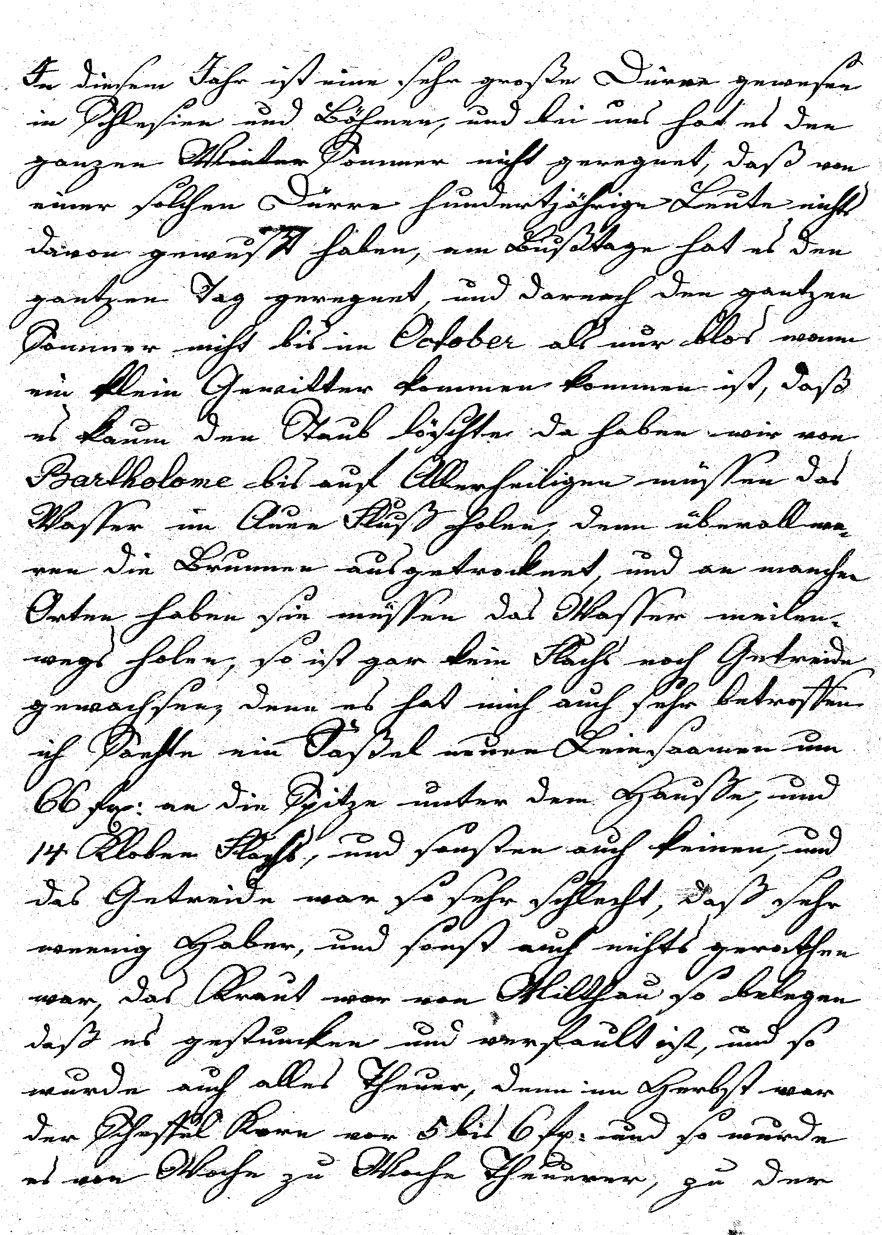 In diesem Jahr ist eine sehr große Dürre gewesen
in Schlesien und Böhmen, und bei uns hat es den
ganzen Winter Sommer nicht geregnet, daß von
einer solchen Dürre hundertjährige Leute nichts
davon gewußt haben, am Bußtage hat es den
gantzen Tag geregnet, und darnach den gantzen
Sommer nicht bis im October als nur blos wann
ein klein Gewitter kommen kommen ist, daß
es kaum den Staub löschte da haben wir von
Bartholome bis auf Allerheiligen müssen das
Wasser im Auen Fluß holen, denn überall wa-
ren die Brunnen ausgetrocknet, und an manchen
Orten haben sie müssen das Wasser meilen-
wegs holen, so ist gar kein Flachs noch Getreide
gewachsen, denn es hat mich auch sehr betroffen
ich Säehte ein Fäßel neuen Leinsaamen um
66 fx: an die Spitze unter dem Hauße, und
14 Kloben Flachs, und sonsten auch keinen, und
das Getreide war so sehr schlecht, daß sehr
weenig Haber, und sonst auch nichts gerathen
war, das Kraut war von Milthau so belegen
daß es gestuncken und verfault ist, und so
wurde auch alles Theuer, denn im Herbst war
der Scheffel Korn vor 5 bis 6 fx: und so wurde
es von Woche zu Woche Theuerer, zu der